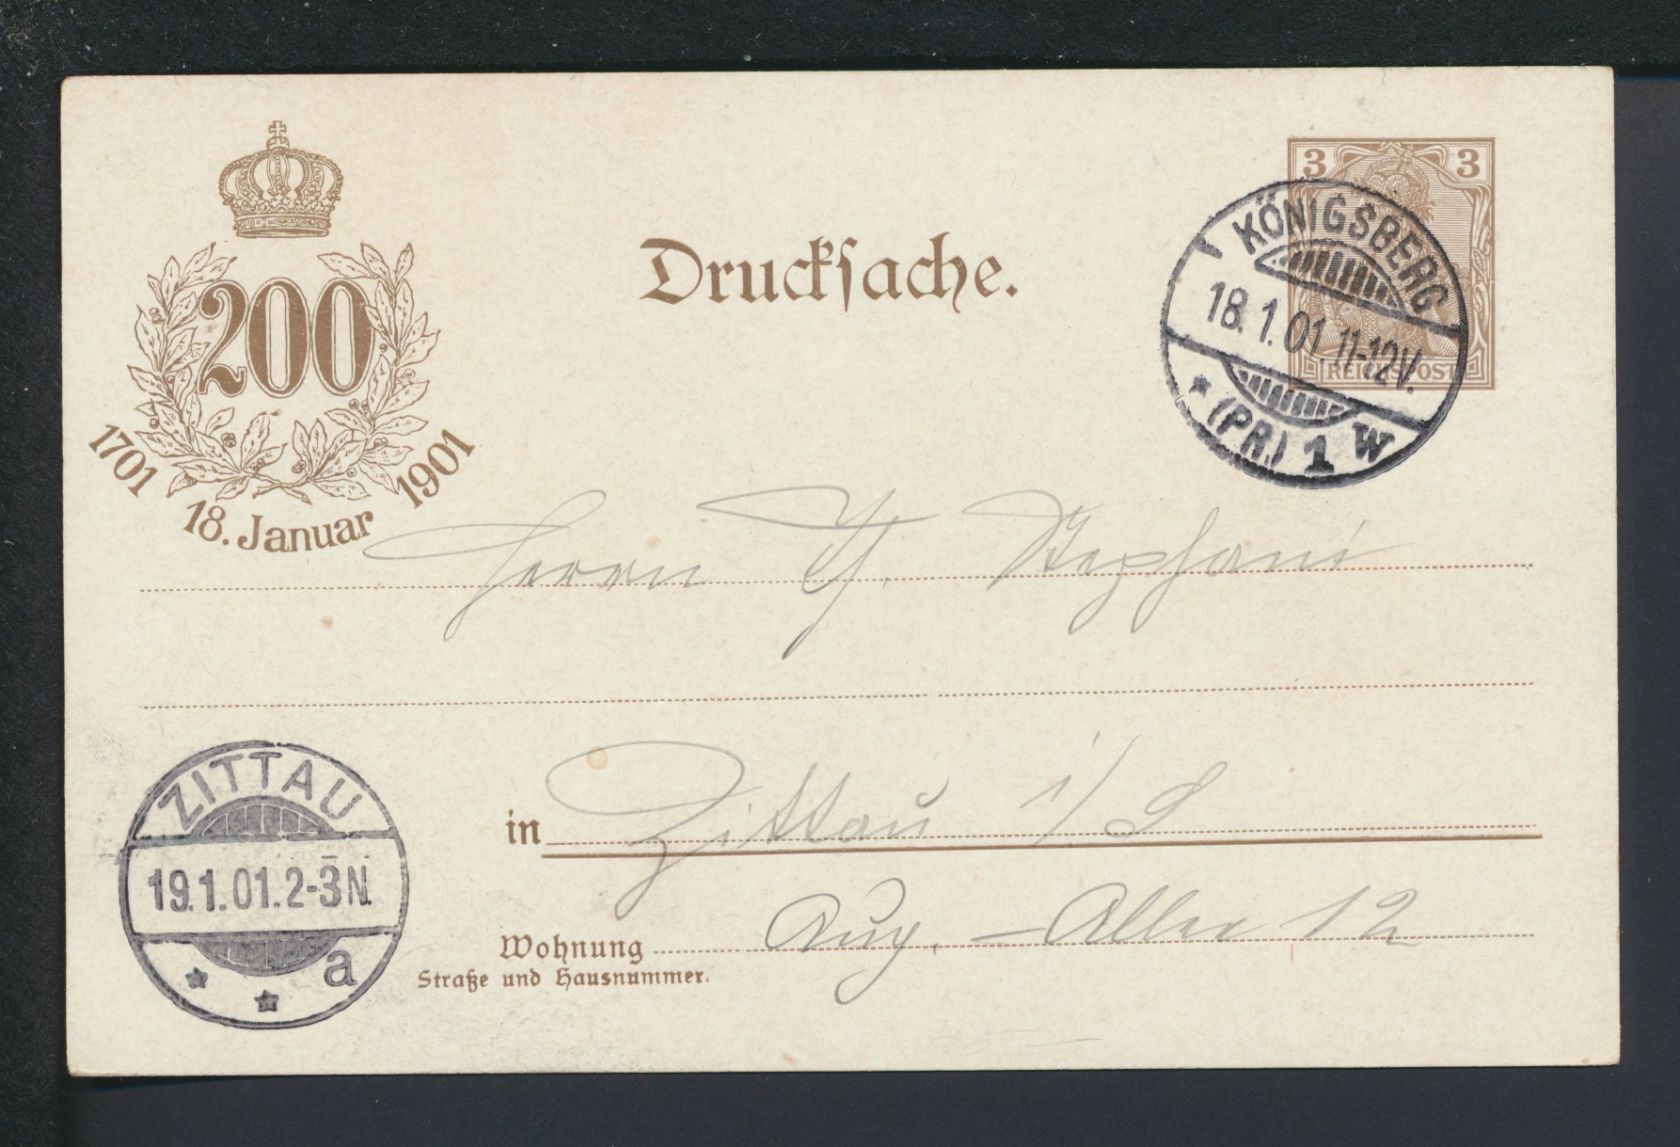 200
1701 18. Januar 1901
Drucksache.
3 3
REICHSPOST
KÖNIGSBERG
18.1.01.11-12V.
* (PR.) 1 W
Herrn Y. Stephani
in Zittau i/S
Wohnung Aug.-Allee 12
Straße und Hausnummer.
ZITTAU
19.1.01.2-3N.
* * a